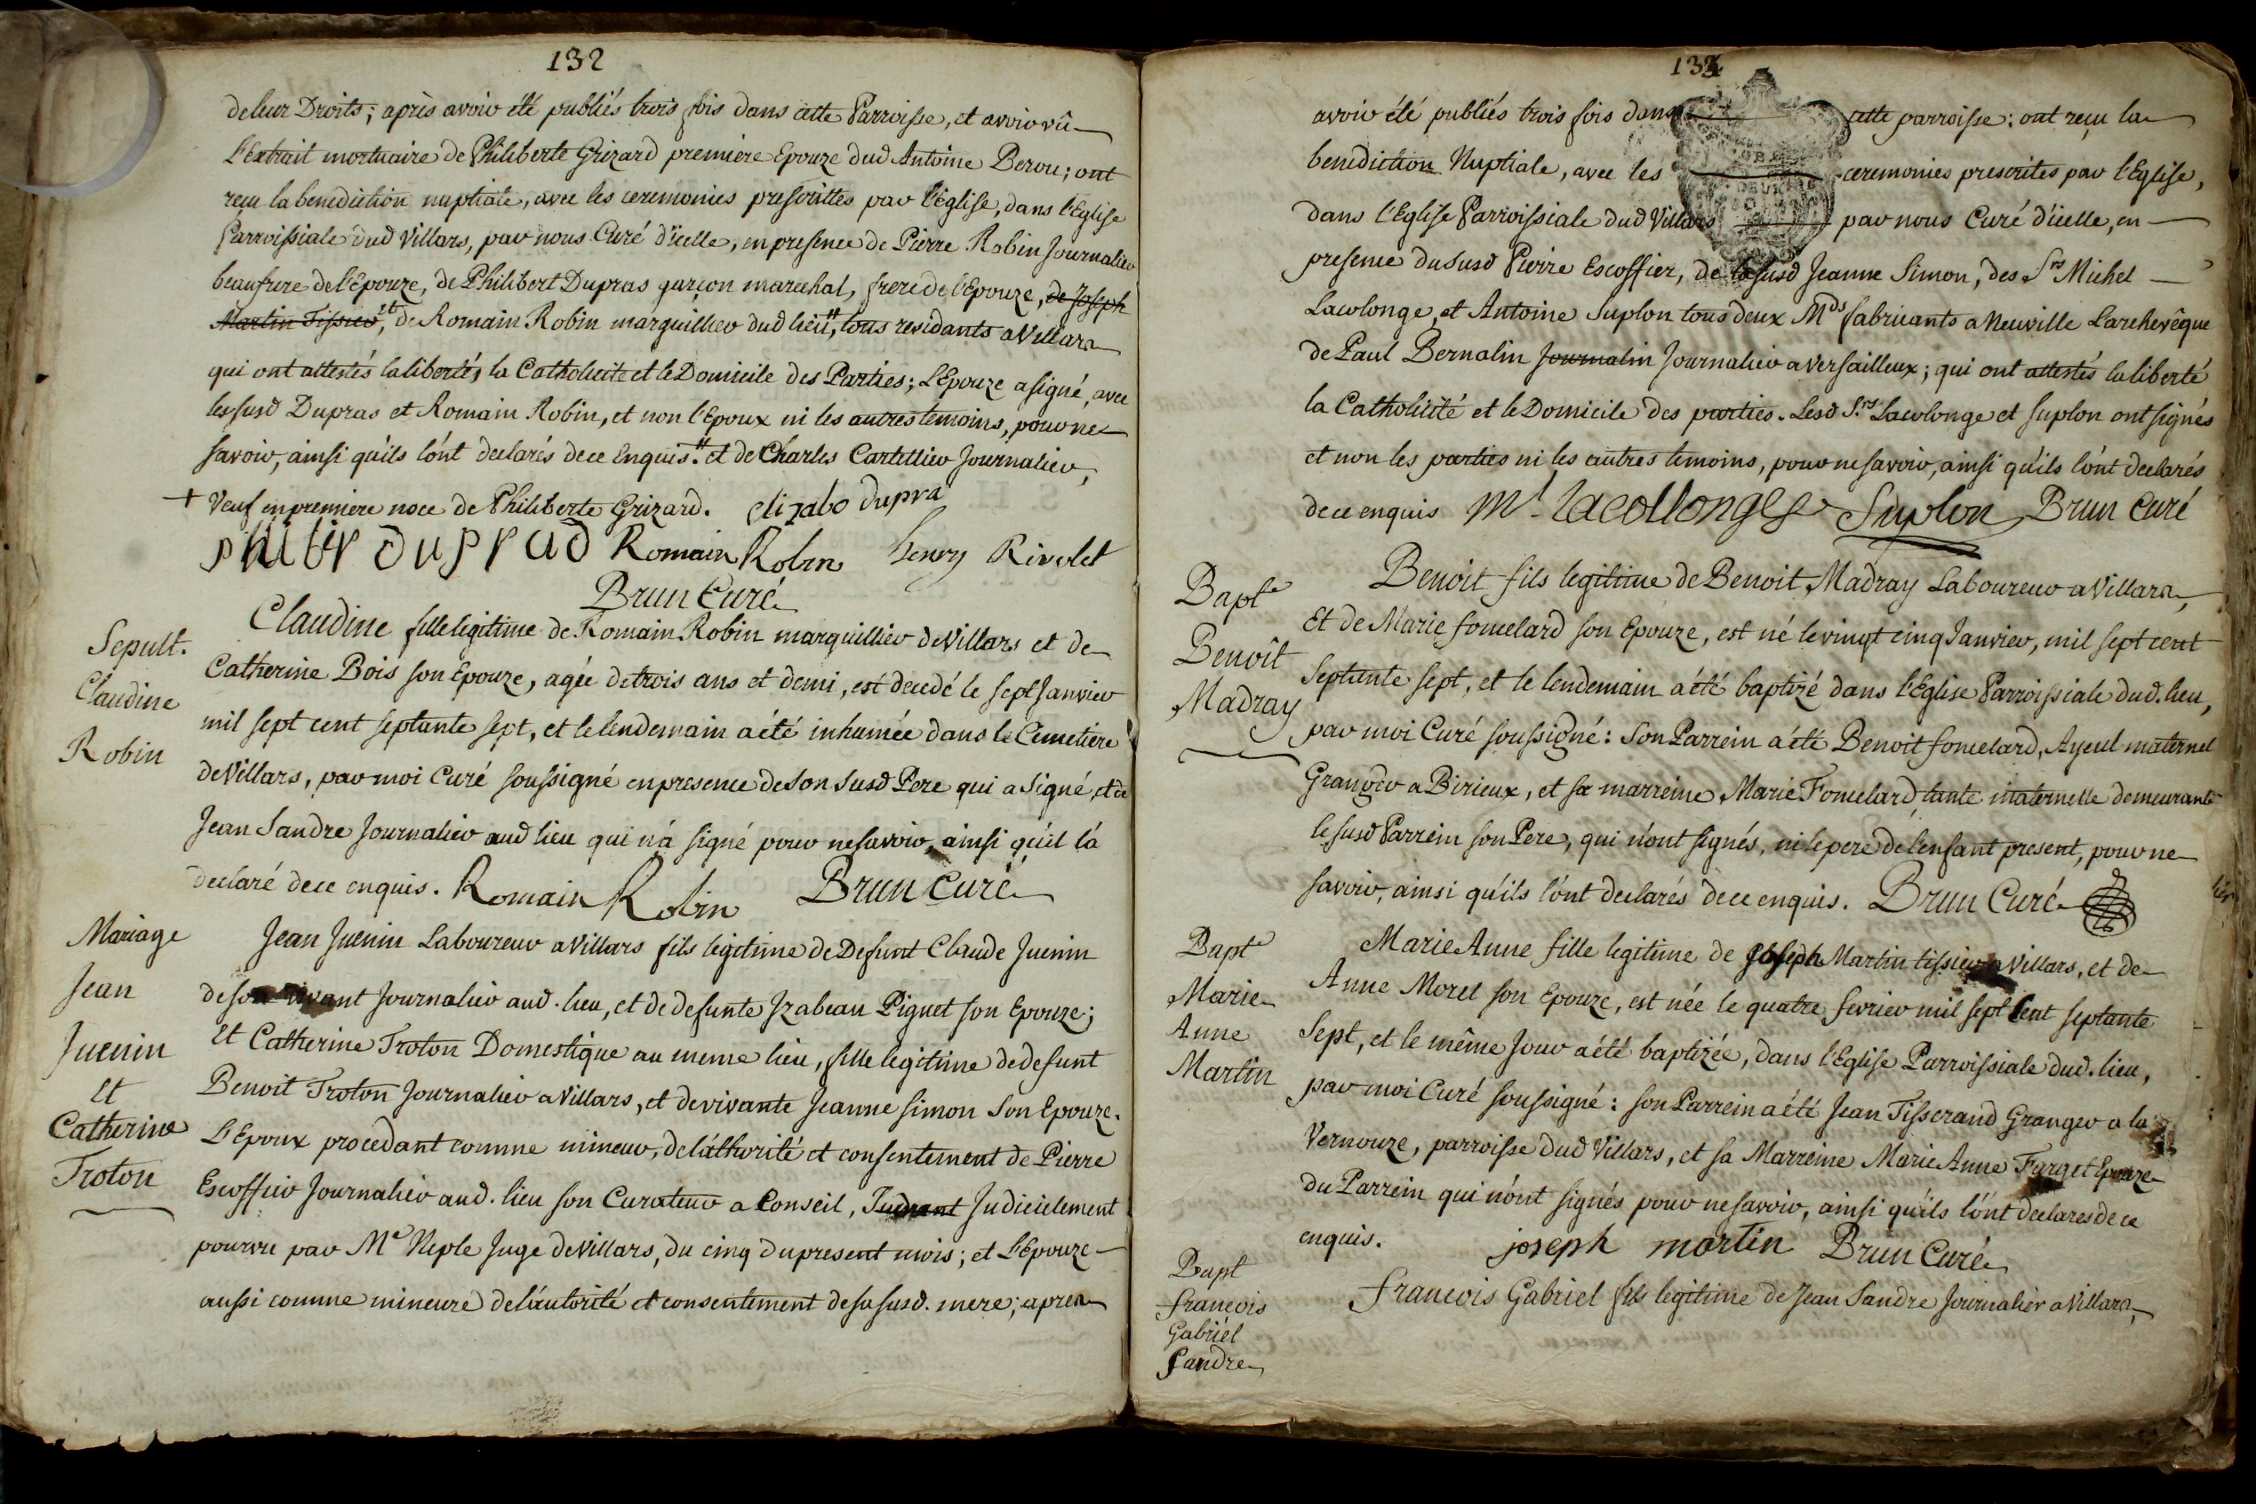 132
de leur Droits; après avoir été publiés trois fois dans cette Parroisse, et avoir vû
l'Extrait mortuaire de Philiberte Grizard premiere Epouze dud Antoine Berou; ont
reçu la benediction nuptiale, avec les ceremonies prescrittes par l'Eglise, dans l'Eglise
Parroissiale dud Villars, par nous Curé d'icelle, en presence de Pierre Robin Journalier
beaufrere de l'Epouze, de Philibert Dupras garçon marechal, frere de l'Epouze, de Joseph
Martin Tissier, et de Romain Robin marguillier dud lieu", tous residants a Villars
qui ont attestés la liberté, la Catholicite et le Domicile des Parties; L'Epouze a signé, avec
les susd Dupras et Romain Robin, et non l'Epoux ni les autres temoins, pour ne
savoir, ainsi qu'ils l'ont declarés de ce Enquis." et de Charles Cartillier Journalier,
+ Veuf en premiere noce de Philiberte Grizard. elizabo dupra
philir duprad Romain Robin henry Rivolet
Brun Curé
Sepult.
Claudine
Robin
Claudine fille legitime de Romain Robin marguillier de Villars et de
Catherine Bois son Epouze, agée de trois ans et demi, est decedé le sept Janvier
mil sept cent septante sept, et le lendemain a été inhumée dans le Cimetiere
de Villars, par moi Curé soussigné en presence de son susd Pere qui a signé, et de
Jean Sandre Journalier aud lieu qui n'a signé pour ne savoir, ainsi qu'il l'a
declaré de ce enquis. Romain Robin Brun Curé
Mariage
Jean
Juenin
Et
Catherine
Troton
Jean Juenin Laboureur a Villars fils legitime de Defunt Claude Juenin
de son vivant Journalier aud. lieu, et de defunte Izabeau Piguet son Epouze;
Et Catherine Troton Domestique au meme lieu, fille legitime de defunt
Benoit Troton Journalier a Villars, et de vivante Jeanne Simon son Epouze.
L'Epoux procedant comme mineur, de l'athorité et consentement de Pierre
Escoffier Journalier aud. lieu son Curateur a Conseil, Judicielement
pourvu par Me Neple Juge de Villars, du cinq du present mois; et l'Epouze
aussi comme mineure de l'autorité et consentement de sa susd. mere; apres
133
avoir été publiés trois fois dans cette parroisse: ont reçu la
benediction Nuptiale, avec les ceremonies prescrites par l'Eglise,
dans l'Eglise Parroissiale dud Villars par nous Curé d'icelle, en
presence du susd Pierre Escoffier, de la susd Jeanne Simon, des Srs Michel
Lacolonge, et Antoine Suplon tous deux Mds fabricants a Neuville Larchevêque
de Paul Bernalin Journalin Journalier a Versailleux; qui ont attestés la liberté
la Catholicité et le Domicile des parties. Lesd Srs Lacolonge et Suplon ont signés
et non les parties ni les autres temoins, pour ne savoir, ainsi qu'ils l'ont declarés
de ce enquis Ml Lacollonge Suplon Brun Curé
Bapt
Benoît
Madray
Benoit fils legitime de Benoit Madray Laboureur a Villars,
Et de Marie foncelard son Epouze, est né le vingt cinq Janvier, mil sept cent
septante sept, et le lendemain a été baptizé dans l'Eglise Parroissiale dud. lieu,
par moi Curé soussigné: Son Parrein a été Benoit foncelard, Ayeul maternel
Granger a Birieux, et sa marreine Marie Foncelard tante maternelle demeurante
le susd Parrein son Pere, qui n'ont signés, ni le pere de l'enfant present, pour ne
savoir, ainsi qu'ils l'ont declarés de ce enquis. Brun Curé
Bapt
Marie
Anne
Martin
Marie Anne fille legitime de Joseph Martin tissier a Villars, et de
Anne Morel son Epouze, est née le quatre fevrier mil sept cent septante
Sept, et le même Jour a été baptizée, dans l'Eglise Parroissiale dud. lieu,
par moi Curé soussigné: son Parrein a été Jean Tisserand Granger a la
Vernouze, parroisse dud Villars, et sa Marreine Marie Anne Farget Epouze
du Parrein qui n'ont signés pour ne savoir, ainsi qu'ils l'ont declarés de ce
enquis. joseph martin Brun Curé
Bapt
francois
Gabriel
Sandre
francois Gabriel fils legitime de Jean Sandre Journalier a Villars,